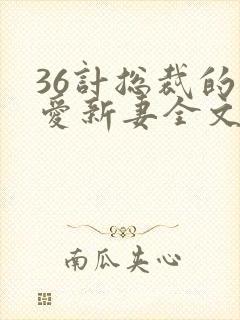 36计总裁的
爱新妻全文
南瓜夹心